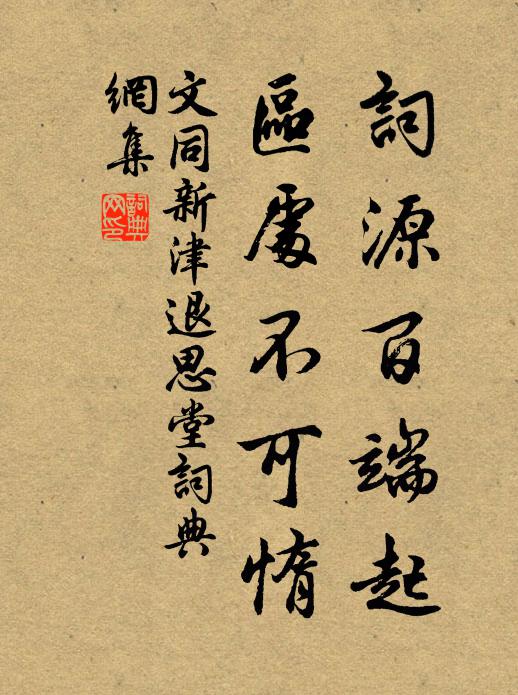 詞源百端起
區處不可惰
文同新津退思堂詞典
網集
詞典網印